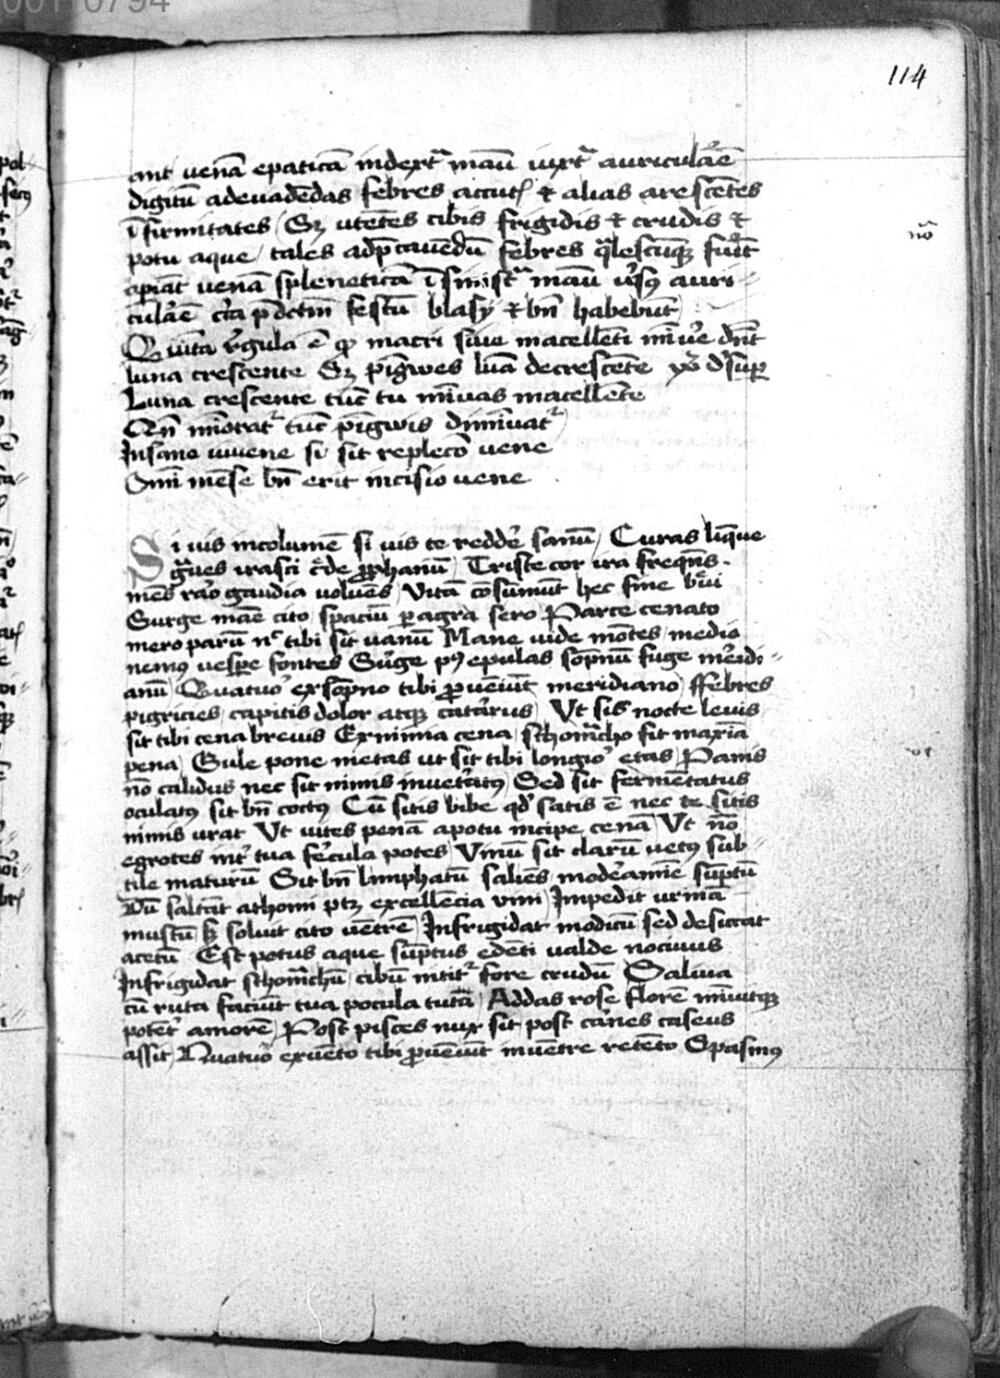 00110794
114
ant venā epaticā indextᷓ manū iuxtᷓ auriculāē
digitū ad euadēdas febres accut & alias arescētes
īfirmitates Sꝫ utētes cibis frigidis & crudis &
potu aque / tales ad p̄cauēdū febres q̄lescūqꝫ fuīt
apiāt uenā spleneticā ī sinistᷓ manū ūsꝰ auri-
culāē cīca p̄dctm̄ festū blasy & bn̄ habebūt
nō
Quīta rēgula ē qꝫ macri siue macellēti mīuē dn̄t
luna crescente Sꝫ pīgwes lūa decrescēte
Luna crescente tūc tu mīuas macellēte
Qn̄ mīoratᷣ tūc pīgwis dimīuatᷣ
Insano iuuene si sit replecō uene
Omī mēse bn̄ erit incisio uene
Si uis incolumē si uis te reddē sanū / Curas līque
gᷓues irasci cᵉde ꝓphanū / Triste cor ira freqn̄s
mēs rāo gaudia uoluēs / Vitā cōsumūt hec fine bᵉui
Surge māe cito / spaciū ꝑagra sero Parce cenato
mero parū nᶜ tibi sit uanū Mane uide mōtes / medio
nemꝰ uesꝑe fontes Sūge pꝰ epulas sōpnū fuge mēidi-
anū / Quatuoᷣ ex sōpno tibi ꝓueniūt meridiano / ffebres
pigricies / capitis dolor atqꝫ catārus / Vt sis nocte leuis
sit tibi cena breuis Ex nimia cena / stomᷓcho fit maxīa
pena / Gule pone metas ut sit tibi longioᷣ etas / Panis
nō calidus nec sit nimis inuetᵉatꝰ Sed sit fermētatus
oculatꝰ sit bn̄ coctꝰ Cū sitis bibe qd̓ satis ē nec te sitis
nimis urat Vt uites penā a potu incipe cenā Vt nō
egrotes intᵉ tua fēcula potes / Vinū sit clarū uetꝰ sub-
tile maturū Sit bn̄ limphatū saliēs modēamīe sūptū
Dū saltāt athomi ptꝫ excellēcia uini / Impedit urinā
mustū sꝫ soluit cito uētrē / Infrigidat modicū sed desiccat
acetū Est potus aque sūptus edēti ualde nociuus
Infrigidat stomᷓchū cibū nititᷣ fore crudū Saluia
cū ruta faciūt tua pocula tuta / Addas rose florē mīuitqꝫ
potētᵉ amorē / Post pisces nux sit post cārnes caseus
assit / Quatuoᷣ ex uēto tibi ꝓueniūt in uētre retēto Spasmꝰ